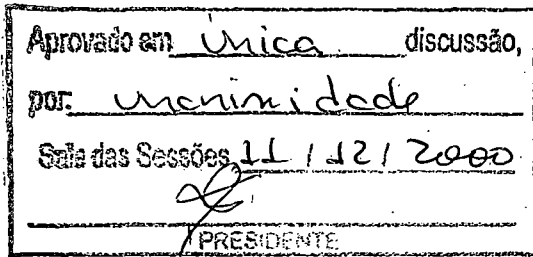 Aprovado em única discussão,
por: unanimidade
Sala das Sessões 11 / 12 / 2000
PRESIDENTE